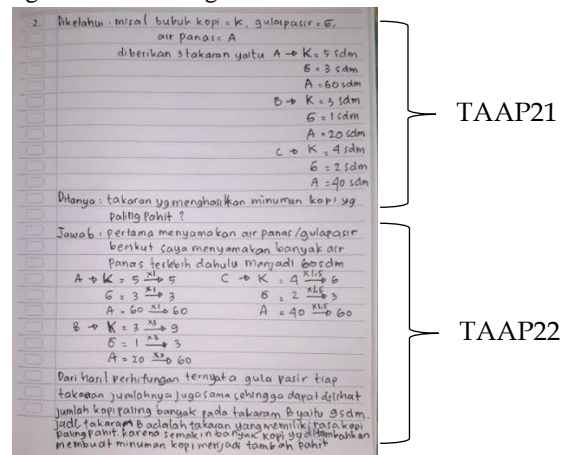 2. Diketahui : misal bubuk kopi = K, gulapasir = G,
air panas = A
diberikan 3 takaran yaitu A → K = 5 sdm
G = 3 sdm
A = 60 sdm
B → K = 3 sdm
G = 1 sdm
A = 20 sdm
C → K = 4 sdm
G = 2 sdm
A = 40 sdm
TAAP21
Ditanya : takaran yg menghasilkan minuman kopi yg
paling pahit ?
Jawab : pertama menyamakan air panas / gulapasir
berikut saya menyamakan banyak air
panas terlebih dahulu menjadi 60 sdm
A → K = 5 x1→ 5
G = 3 x1→ 3
A = 60 x1→ 60
C → K = 4 x1,5→ 6
G = 2 x1,5→ 3
A = 40 x1,5→ 60
B → K = 3 x3→ 9
G = 1 x3→ 3
A = 20 x3→ 60
Dari hasil perhitungan ternyata gula pasir tiap
takaran jumlahnya juga sama sehingga dapat dilihat
jumlah kopi paling banyak pada takaram B yaitu 9 sdm.
jadi, takaram B adalah takaran yang memiliki rasa kopi
paling pahit karena semakin banyak kopi yg ditambahkan
membuat minuman kopi menjadi tambah pahit
TAAP22